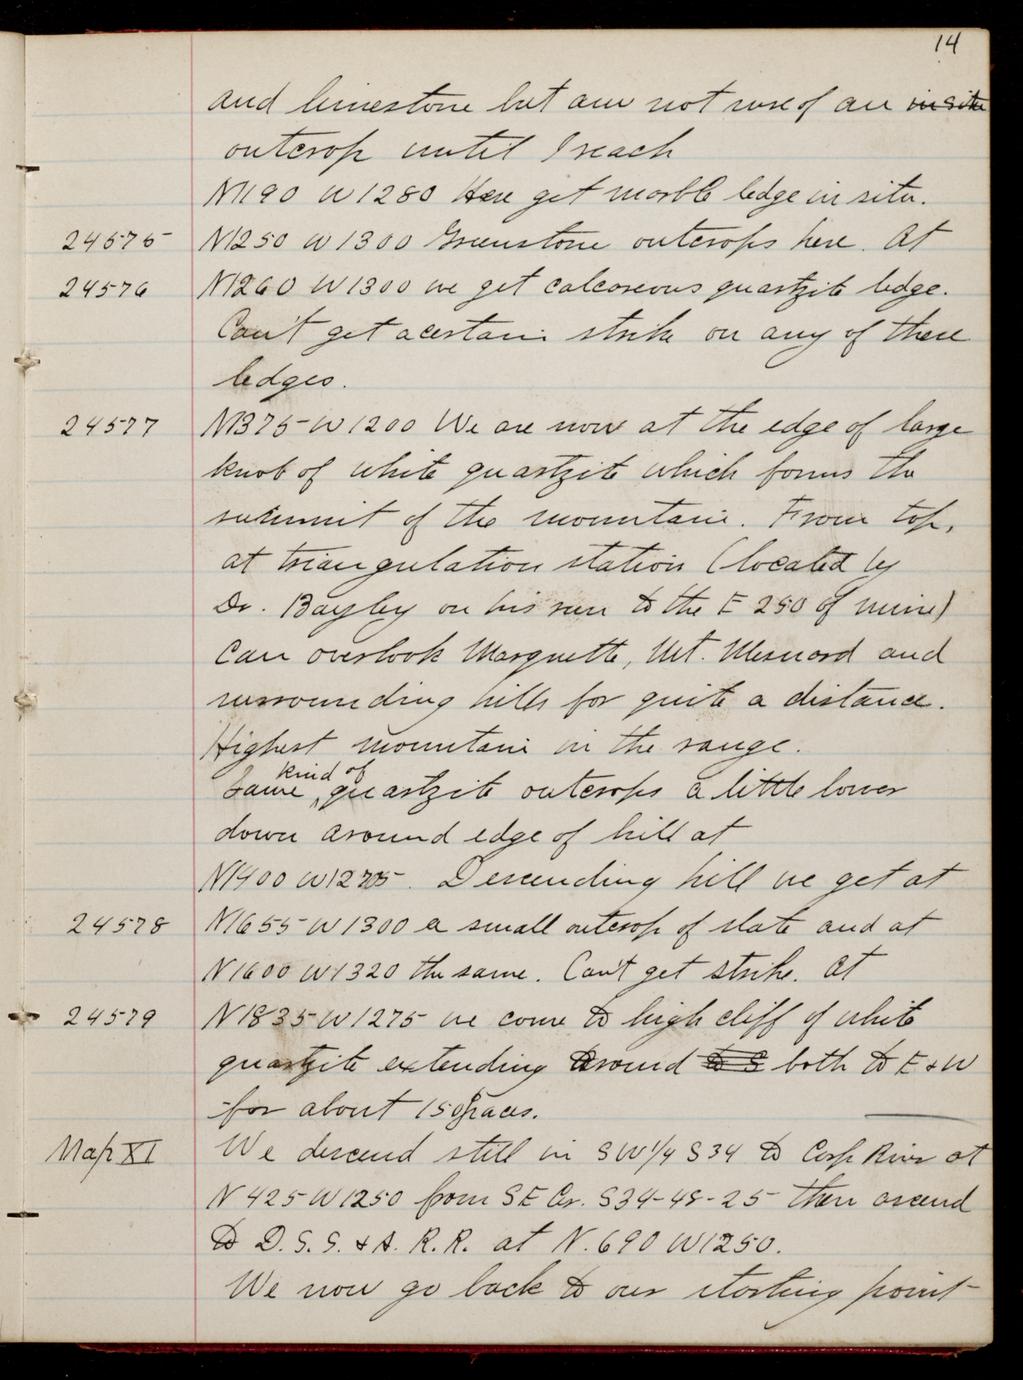 14
and limestone but am not sure of an in situ
outcrop until I reach
N1190 W1280 Here get marble ledge in situ.
24575 N1250 W1300 Greenstone outcrops here. At
24576 N1260 W1300 we get calcareous quartzite ledge.
Can't get a certain strike on any of these
ledges.
24577 N1375 W1200 We are now at the edge of large
knob of white quartzite which forms the
summit of the mountain. From top,
at triangulation station (located by
Dr. Bayley on his run to the E 250 of mine)
can overlook Marquette, Mt. Mesnard and
surrounding hills for quite a distance.
Highest mountain in the range.
Same kind of quartzite outcrops a little lower
down around edge of hill at
N1400 W1275. Descending hill we get at
24578 N1655 W1300 a small outcrop of slate and at
N1600 W1320 the same. Can't get strike. At
24579 N1835 W1275 we come to high cliff of white
quartzite extending around to S both to E & W
for about 150 paces.
Map XI We descend still in SW1/4 S34 to Carp River at
N425 W1250 from SE Cor. S34-48-25 then ascend
to D.S.S. & A. R.R. at N.690 W1250.
We now go back to our starting point